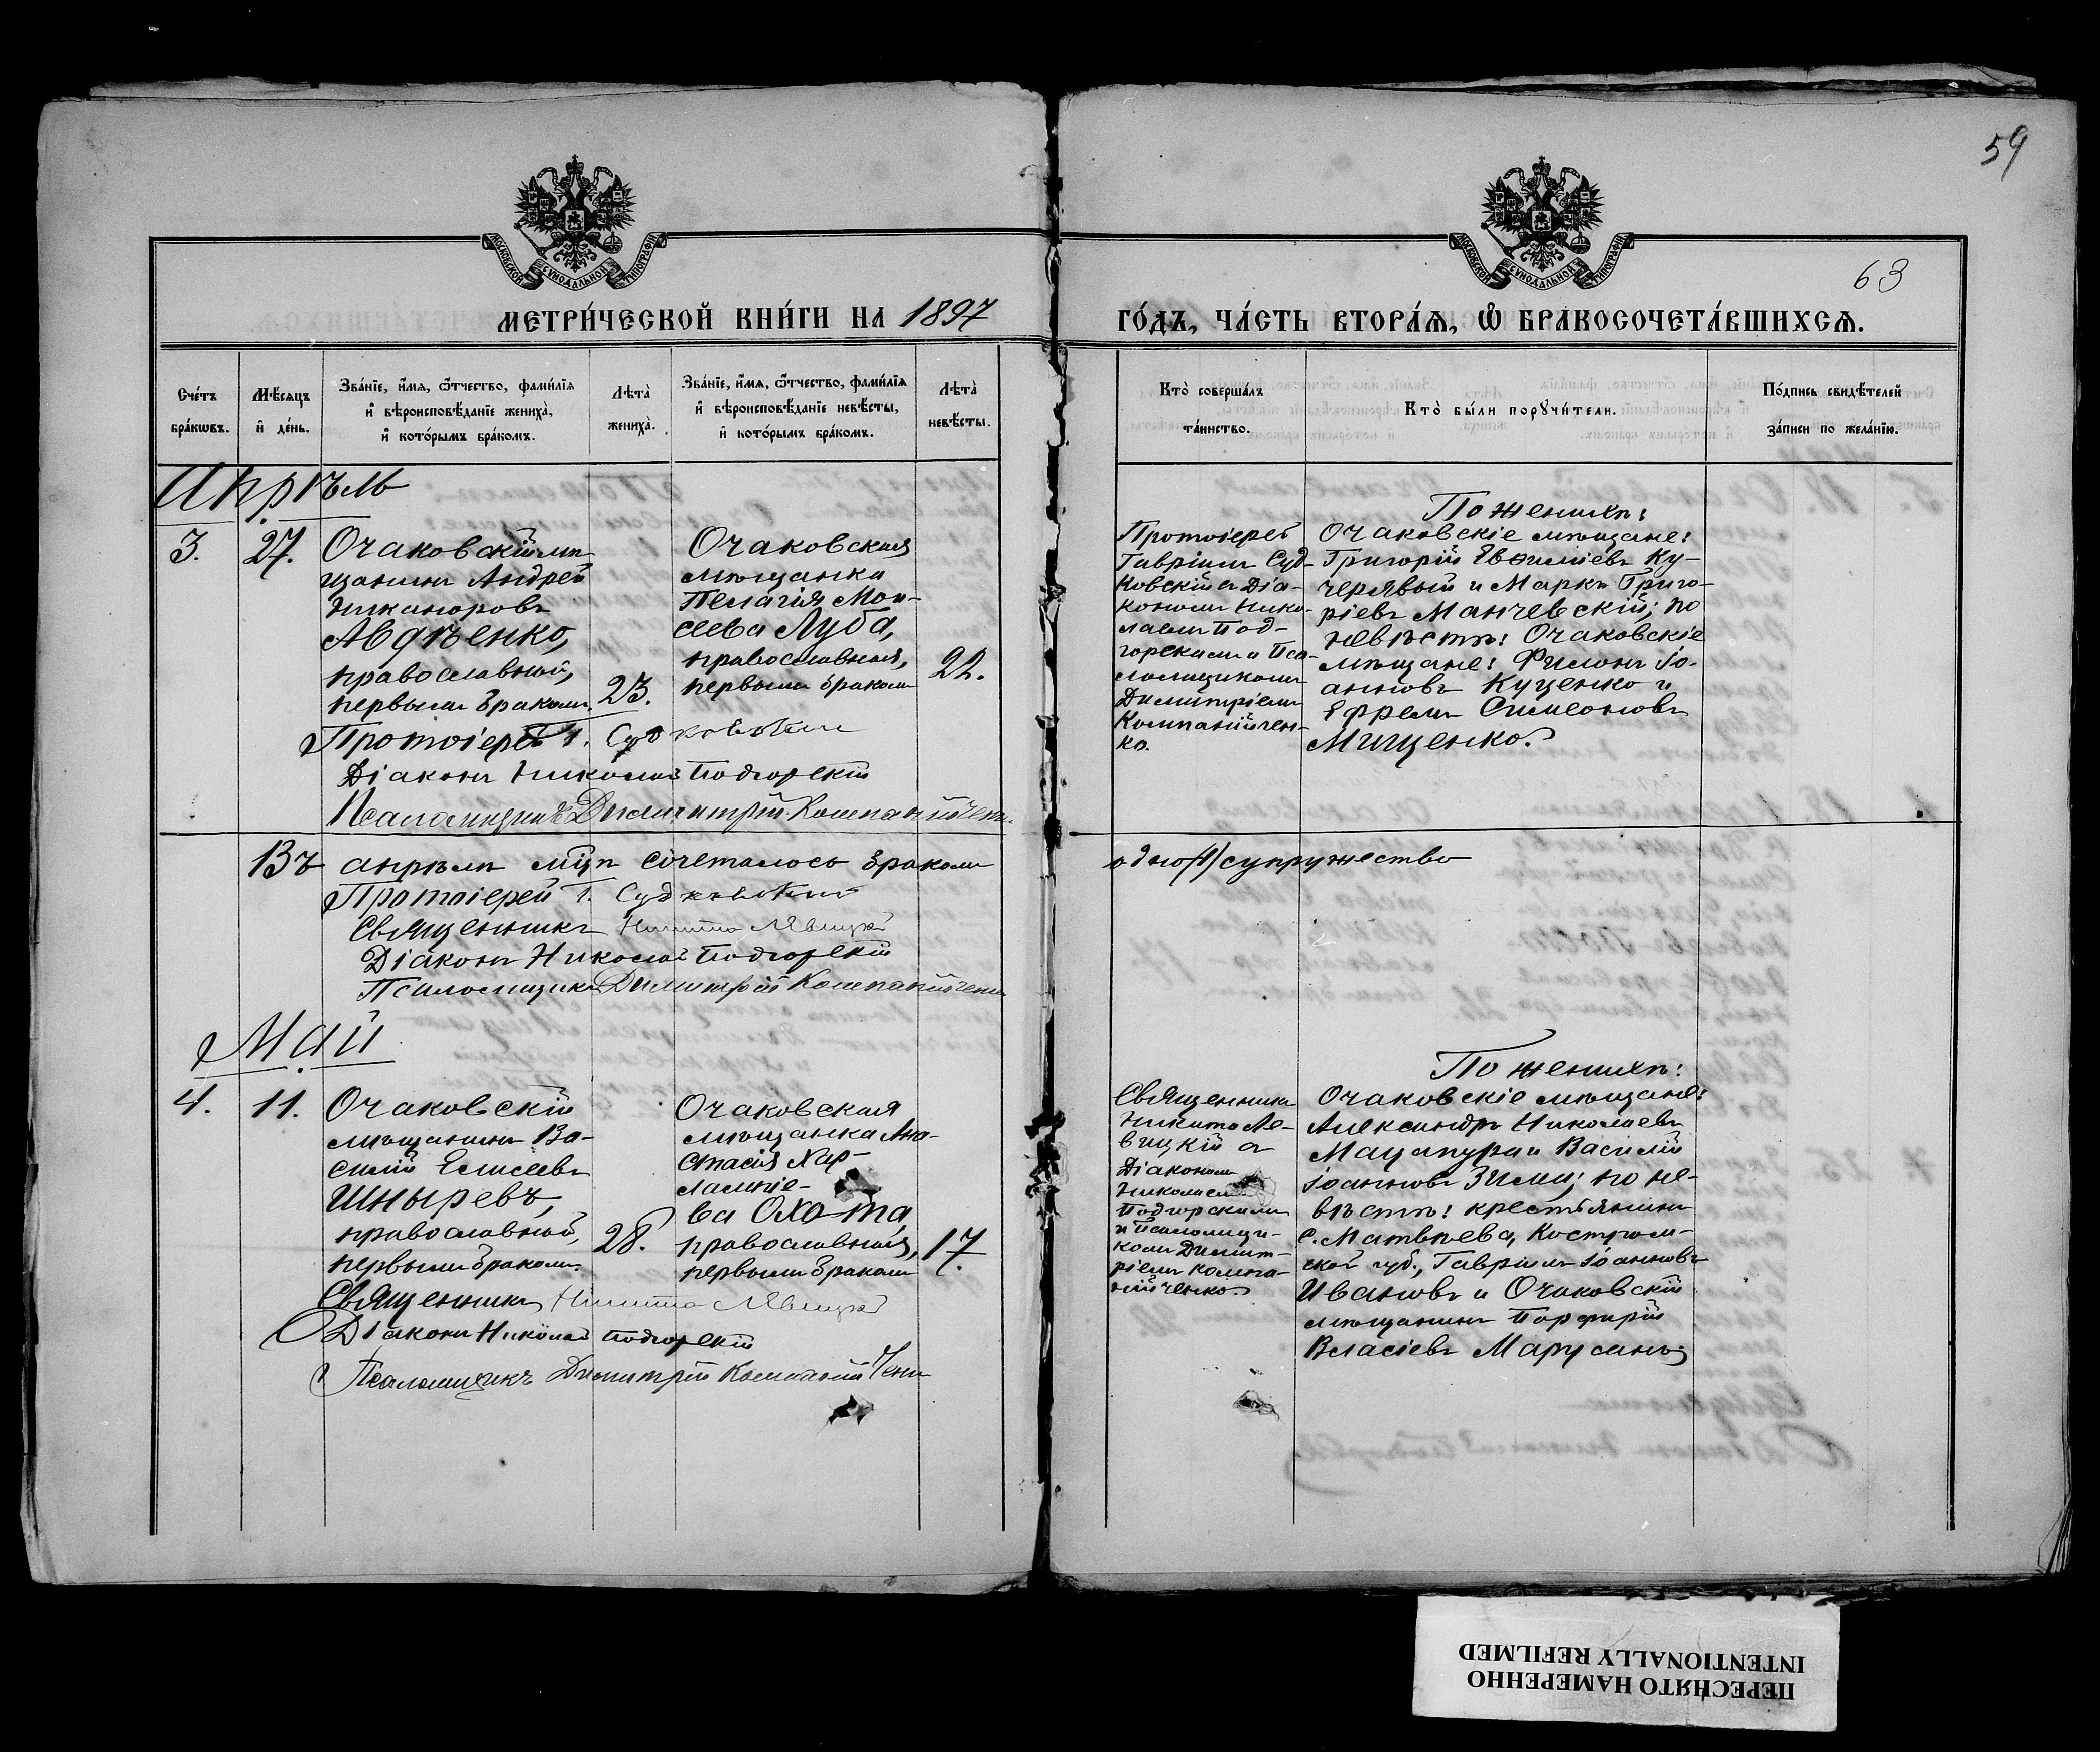 59
63
МОСКОВСКОЙ СѴНОДАЛЬНОЙ ТИПОГРАФІИ
МОСКОВСКОЙ СѴНОДАЛЬНОЙ ТИПОГРАФІИ
МЕТРИ́ЧЕСКОЙ КНИ́ГИ НА 1897
ГО́ДЪ, ЧА́СТЬ ВТОРА́Ѧ, Ѽ БРАКОСОЧЕТА́ВШИХСѦ.
Сче́тъ
бра́кѡвъ.
Мѣ́сѧцъ
и҆ де́нь.
Зва́нїе, и҆́мѧ, ѻ҆́тчество, фами́лїѧ
и҆ вѣроисповѣ́данїе жениха̀,
и҆ кото́рымъ бра́комъ.
Лѣ́та̀
жениха̀.
Зва́нїе, и҆́мѧ, ѻ҆́тчество, фами́лїѧ
и҆ вѣроисповѣ́данїе невѣ́сты,
и҆ кото́рымъ бра́комъ.
Лѣ́та̀
невѣ́сты.
Кто̀ соверша́лъ
та́инство.
Кто̀ бы́ли порꙋчи́тели.
По́дпись свидѣ́телей
за́писи по жела́нїю.
Апрѣль
3.
27.
Очаковскій мѣ-
щанинъ Андрей
Никаноровъ
Авдѣенко,
православный,
первымъ бракомъ.
23.
Очаковская
мѣщанка
Пелагія Мои-
сеева Луба,
православная,
первымъ бракомъ
22.
Протоіерей
Гавріилъ Суд-
ковскій съ Діа-
кономъ Нико-
лаемъ Под-
горскимъ и Пса-
ломщикомъ
Димитріемъ
Компанійчен-
ко.
По женихѣ:
Очаковскіе мѣщане:
Григорій Евѳиміевъ Ку-
черявый и Маркъ Григо-
ріевъ Манчевскій; по
невѣстѣ: Очаковскіе
мѣщане: Филонъ Іо-
анновъ Куценко и
Ефремъ Симеоновъ
Мищенко.
Протоіерей Г. Судковскій
Діаконъ Николай Подгорскій
Псаломщикъ Димитрій Компанійченко
Въ апрѣлѣ мцѣ сочеталось бракомъ
одно (1) супружество
Протоіерей Г. Судковскій
Священникъ Никита Левицкій
Діаконъ Николай Подгорскій
Псаломщикъ Димитрій Компанійченко
Май
4.
11.
Очаковскій
мѣщанинъ Ва-
силій Елисеевъ
Шныревъ,
православный,
первымъ бракомъ.
28.
Очаковская
мѣщанка Ана-
стасія Хар-
лампіе-
ва Охота,
православная,
первымъ бракомъ
17.
Священникъ
Никита Ле-
вицкій съ
Діакономъ
Николаемъ
Подгорскимъ
и Псаломщи-
комъ Димит-
ріемъ Компа-
нійченко.
По женихѣ:
Очаковскіе мѣщане:
Александръ Николаевъ
Мацапура и Василій
Іоанновъ Зима; по не-
вѣстѣ: крестьянинъ
с. Матвѣева, Костром-
ской губ., Гавріилъ Іоанновъ
Ивановъ и Очаковскій
мѣщанинъ Порфирій
Власіевъ Марусинъ
Священникъ Никита Левицкій
Діаконъ Николай Подгорскій
Псаломщикъ Димитрій Компанійченко
ПЕРЕСНЯТО НАМЕРЕННО
INTENTIONALLY REFILMED